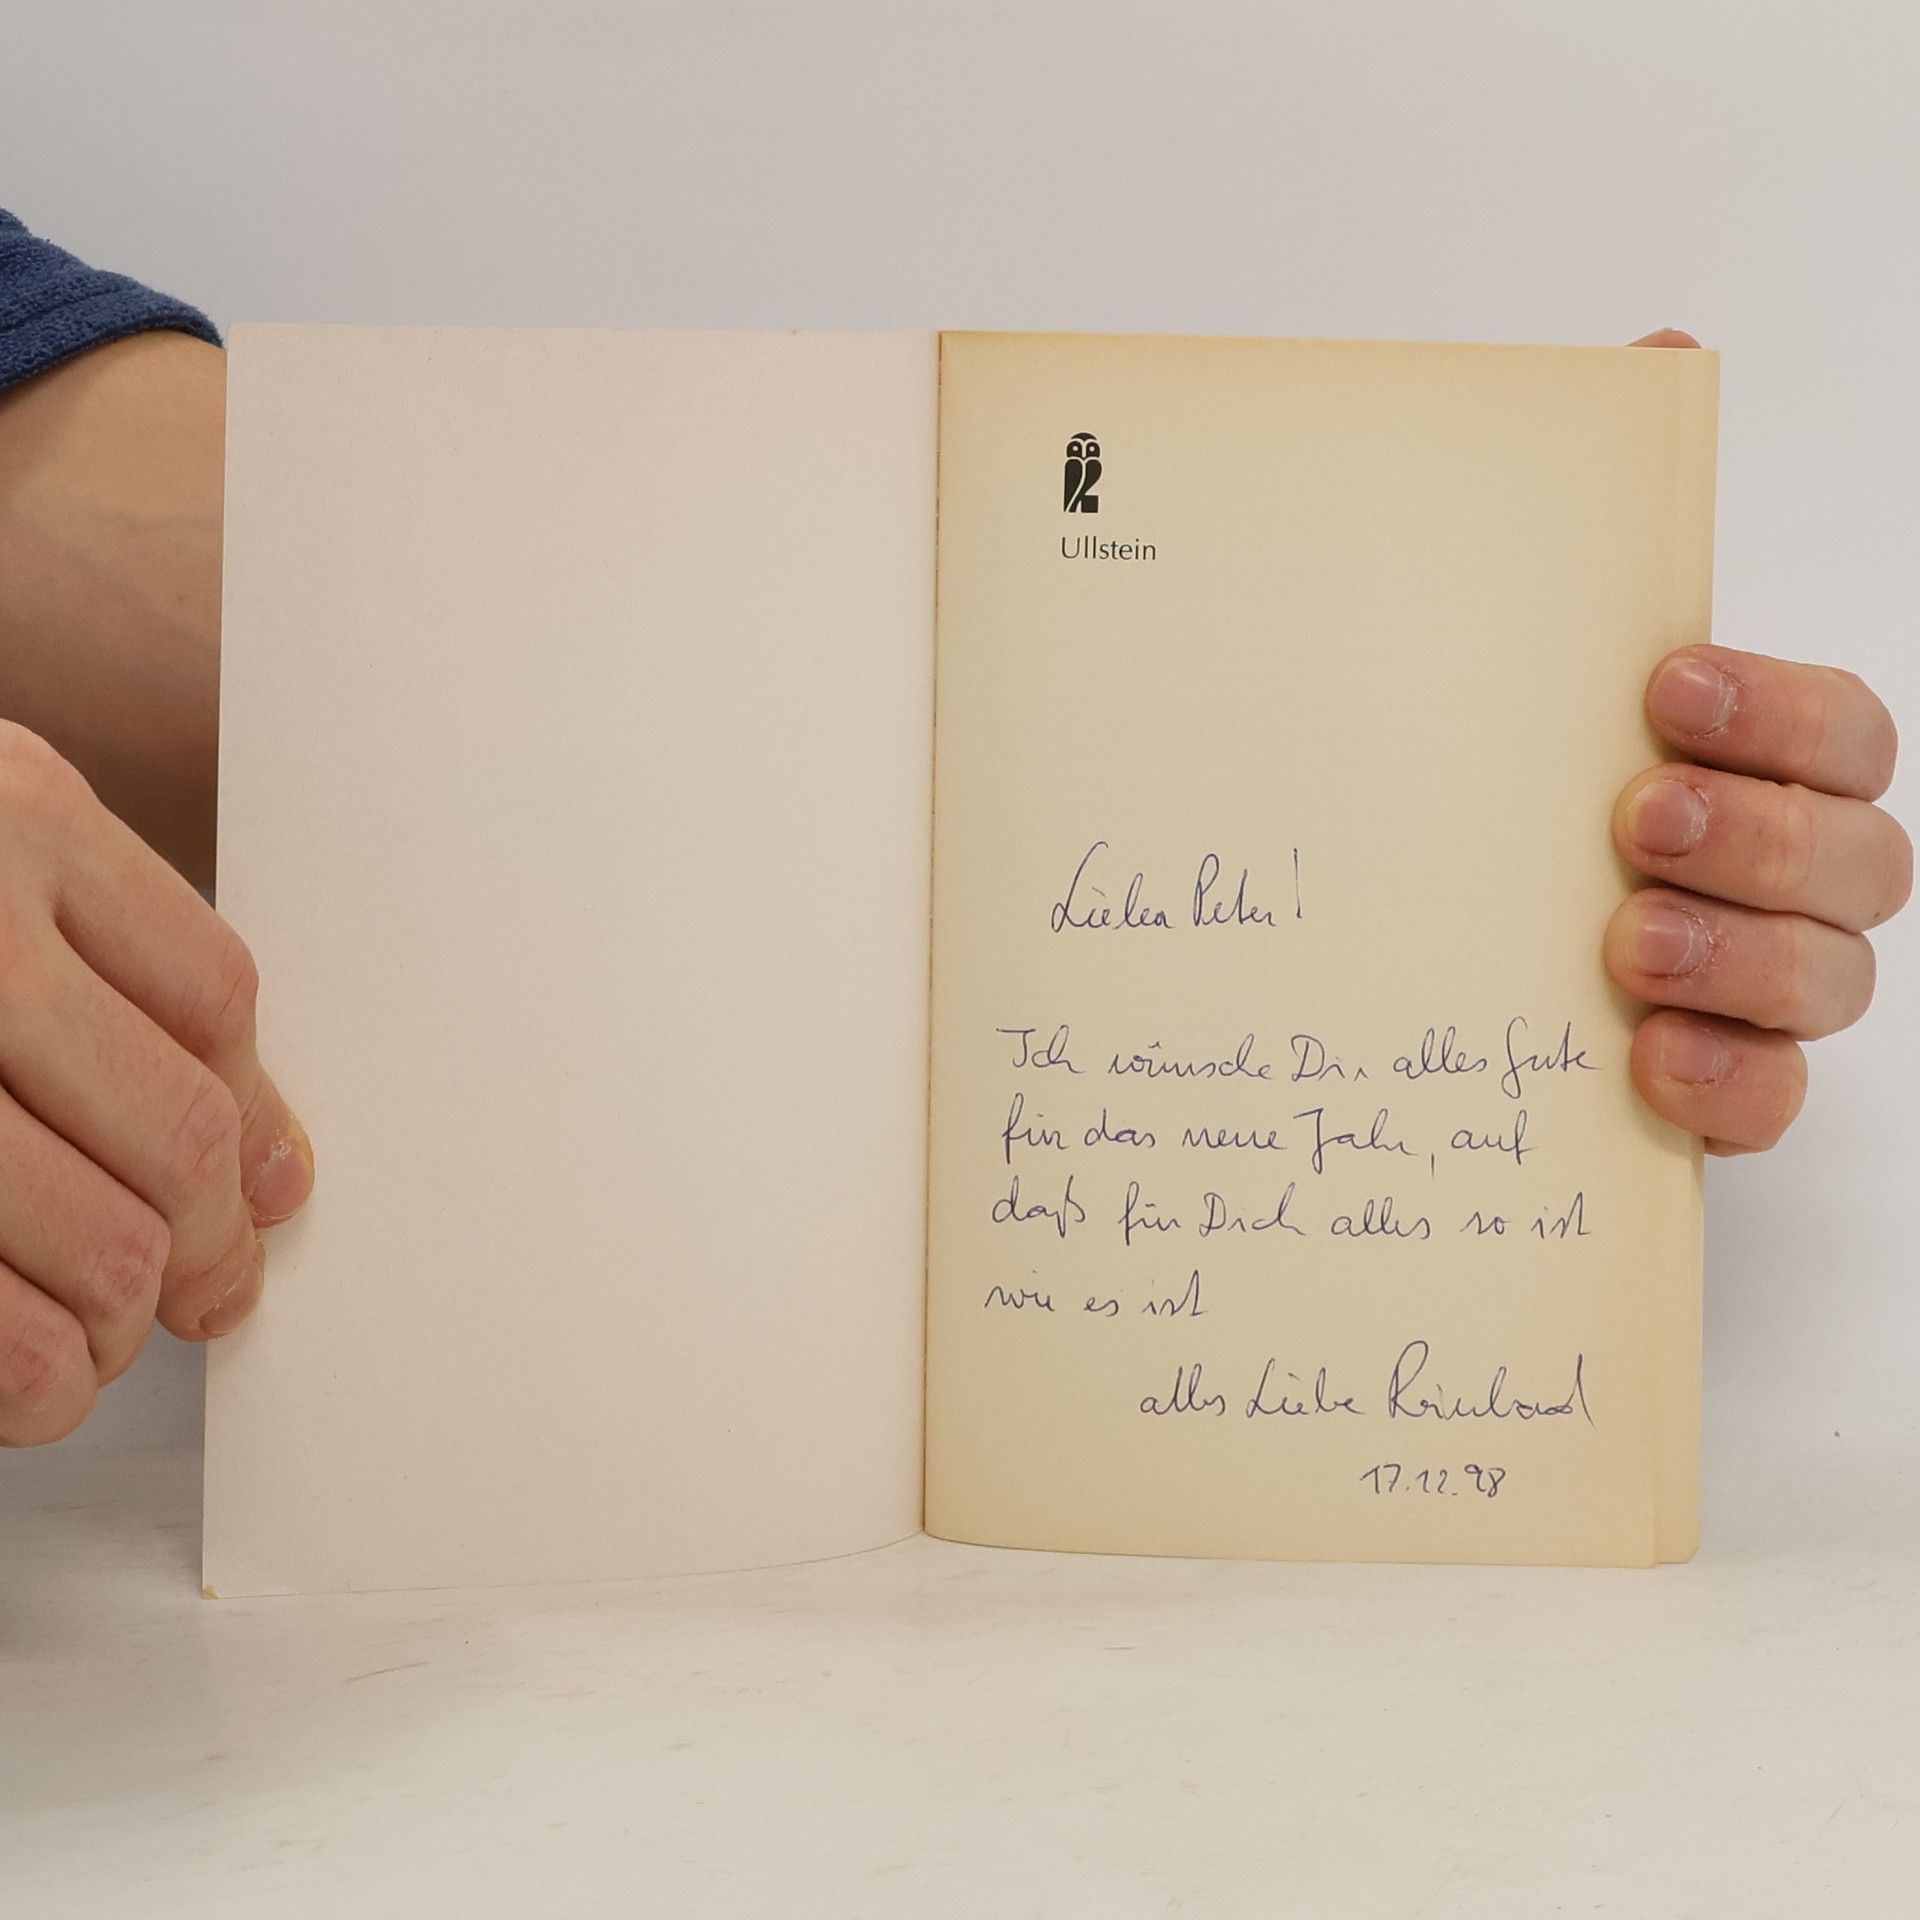 Ullstein
Lieber Peter!
Ich wünsche Dir alles Gute
für das neue Jahr, auf
daß für Dich alles so ist
wie es ist
alles Liebe Reinhard
17.12.98